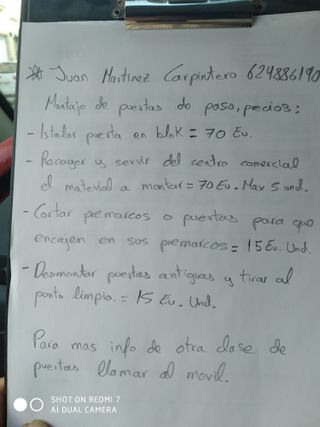 * Juan Martinez Carpintero 624886190
Montaje de puertas de paso, precios:
- Istalar puerta en blok = 70 Eu.
- Recoger y servir del centro comercial
el material a montar = 70 Eu. Max 5 und.
- Cortar premarcos o puertas para que
encajen en sus premarcos = 15 Eu. Und.
- Desmontar puertas antiguas y tirar al
punto limpio. = 15 Eu. Und.
Para mas info de otra clase de
puertas llamar al movil.
SHOT ON REDMI 7
AI DUAL CAMERA